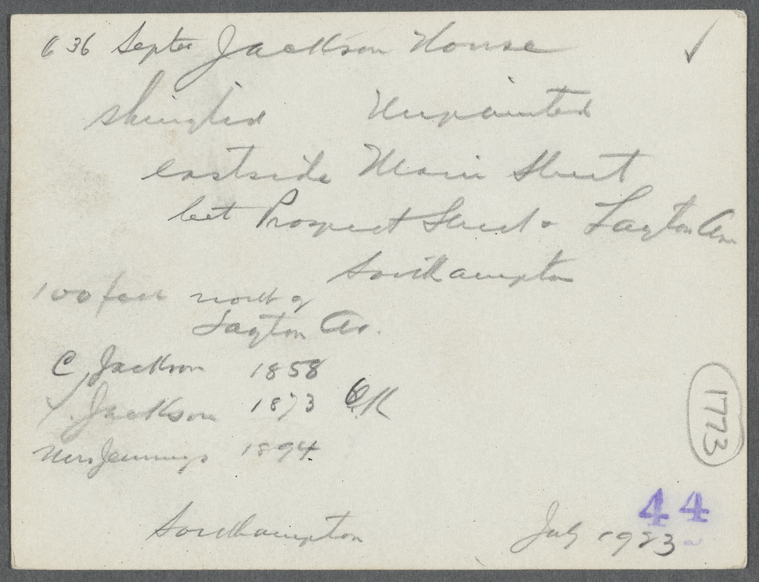 636 Jackson House ✓
shingled Unpainted
eastside Main Street
bet Prospect Street & Layton Ave
Southampton
100 feet north of
Layton Av.
C. Jackson 1858
Y. Jackson 1873 OK
Mrs Jennings 1894
1773
44
Southampton July 1923